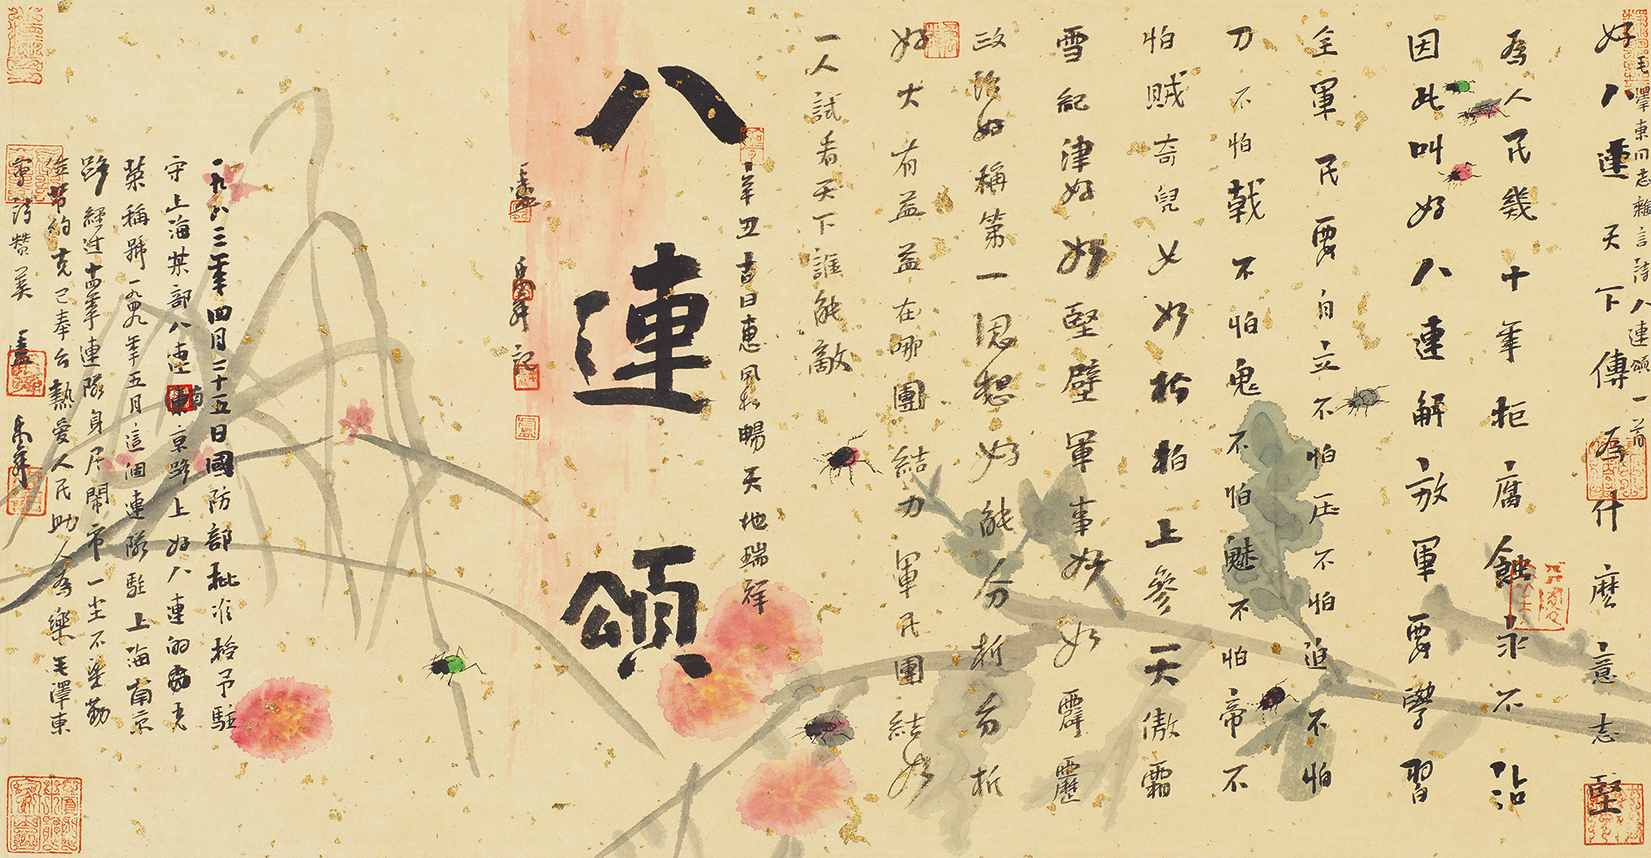 毛澤東同志雜言詩八連頌一首
好八連天下傳為什麽意志堅
為人民幾十年拒腐蝕永不沾
因此叫好八連解放軍要學習
全軍民要自立不怕压不怕迫不怕
刀不怕戟不怕鬼不怕魅不怕帝不
怕賊奇兒女如松柏上參天傲霜
雪紀律好如堅壁軍事好如霹靂
政治好稱第一思想好能分析分析
好大有益益在哪團結力軍民團結如
一人試看天下誰能敵
八連頌
辛丑吉日惠風和暢天地瑞祥
記
一九八三年四月二十五日國防部批准授予駐
守上海某部八連南京路上好八連的光
榮稱號一九四九年五月這個連隊駐上海南京
路經过十四年連隊身居鬧市一尘不染勤
儉节約克己奉公熱愛人民助人為樂毛澤東
寫詩赞美